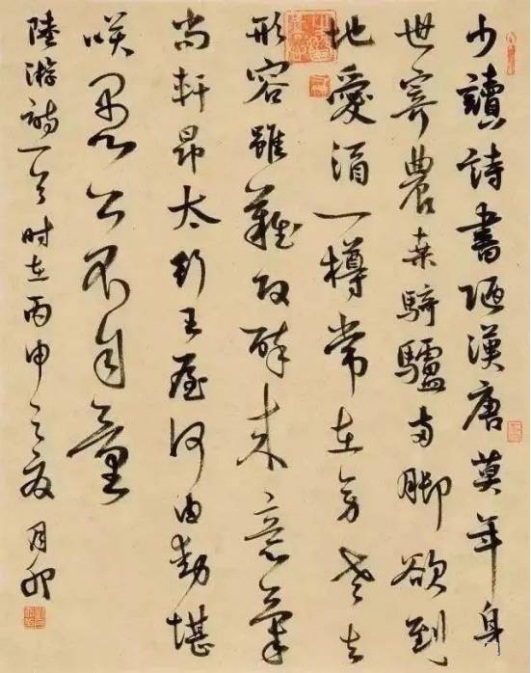 少讀詩書陋漢唐莫年身
世寄農桒騎驢兩脚欲到
地愛酒一樽常在旁老去
形容雖改醉来意氣
尚軒昂太行王屋何由動堪
咲愚公不自量
陸游詩一首时在丙申之夏月